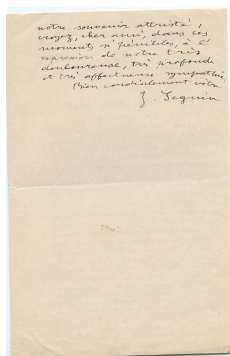 notre souvenir attristé,
croyez, cher ami, dans ces
moments si pénibles, à l'
expression de notre très
douloureuse, très profonde
et très affectueuse sympathie
Bien cordialement vôtre
J. Seguin